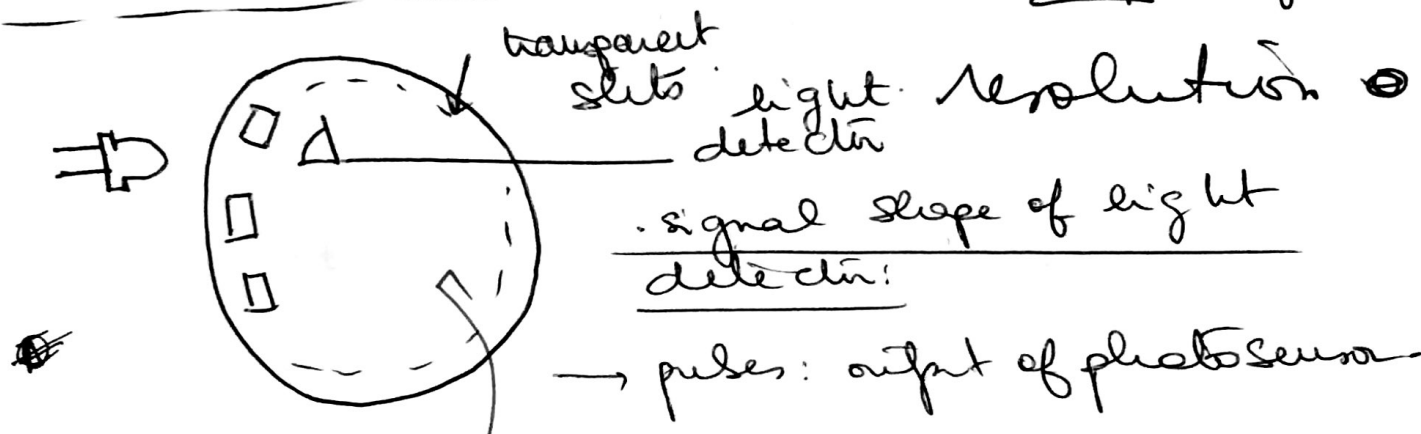 transparent
slits
light resolution
detector
. signal shape of light
detector:
→ pulses: output of photosensor